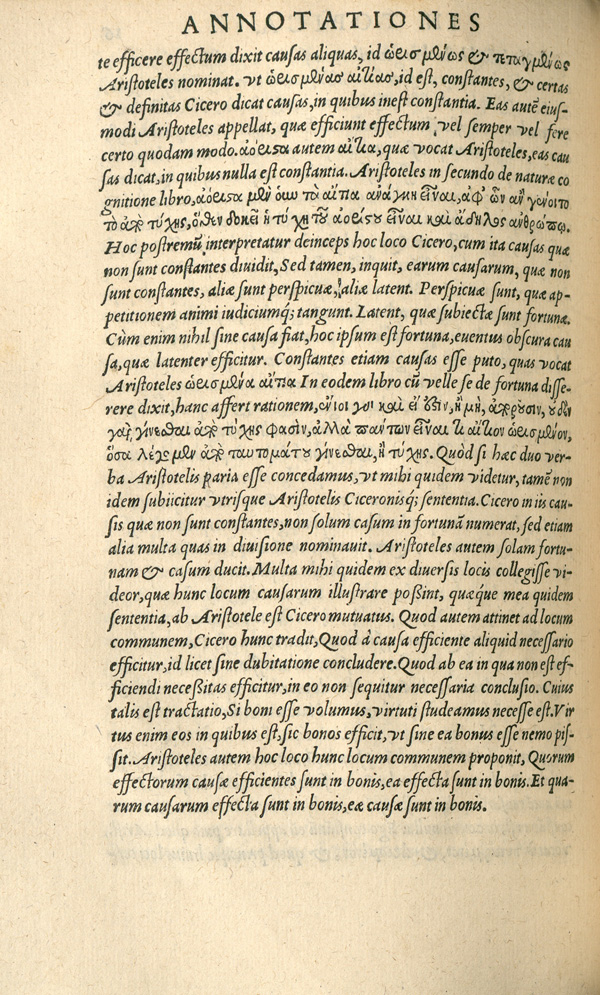 ANNOTATIONES
te efficere effectum dixit causas aliquas, id ὡρισμένως & τεταγμένως
Aristoteles nominat. vt ὡρισμένας αἰτίας, id est, constantes, & certas
& definitas Cicero dicat causas, in quibus inest constantia. Eas autē eius-
modi Aristoteles appellat, quæ efficiunt effectum vel semper vel fere
certo quodam modo. ἀόριστα autem αἴτια, quæ vocat Aristoteles, eas cau
sas dicat, in quibus nulla est constantia. Aristoteles in secundo de naturæ co
gnitione libro, ἀόριστα μὲν οὖν τὰ αἴτια ἀνάγκη εἶναι, ἀφ' ὧν ἂν γένοιτο
τὸ ἀπὸ τύχης, ὅθεν δοκεῖ ἡ τύχη τοῦ ἀορίστου εἶναι καὶ ἄδηλος ἀνθρώπῳ.
Hoc postremū interpretatur deinceps hoc loco Cicero, cum ita causas quæ
non sunt constantes diuidit, Sed tamen, inquit, earum causarum, quæ non
sunt constantes, aliæ sunt perspicuæ, aliæ latent. Perspicuæ sunt, quæ ap-
petitionem animi iudiciumq; tangunt. Latent, quæ subiectæ sunt fortunæ.
Cùm enim nihil sine causa fiat, hoc ipsum est fortuna, euentus obscura cau
sa, quæ latenter efficitur. Constantes etiam causas esse puto, quas vocat
Aristoteles ὡρισμένα αἴτια In eodem libro cū velle se de fortuna disse-
rere dixit, hanc affert rationem, ἔνιοι γὰρ καὶ εἰ ἔστιν, ἢ μὴ, ἀποροῦσιν, οὐδὲν
γὰρ γίνεσθαι ἀπὸ τύχης φασὶν, ἀλλὰ πάντων εἶναι τι αἴτιον ὡρισμένον,
ὅσα λέγομεν ἀπὸ ταυτομάτου γίνεσθαι, ἢ τύχης. Quòd si hæc duo ver-
ba Aristotelis paria esse concedamus, vt mihi quidem videtur, tamē non
idem subiicitur vtrisque Aristotelis Ciceronisq; sententia. Cicero in iis cau-
sis quæ non sunt constantes, non solum casum in fortunā numerat, sed etiam
alia multa quas in diuisione nominauit. Aristoteles autem solam fortu-
nam & casum ducit. Multa mihi quidem ex diuersis locis collegisse vi-
deor, quæ hunc locum causarum illustrare poßint, quæq́ue mea quidem
sententia, ab Aristotele est Cicero mutuatus. Quod autem attinet ad locum
communem, Cicero hunc tradit, Quod à causa efficiente aliquid necessario
efficitur, id licet sine dubitatione concludere. Quod ab ea in qua non est ef-
ficiendi neceßitas efficitur, in eo non sequitur necessaria conclusio. Cuius
talis est tractatio, Si boni esse volumus, virtuti studeamus necesse est. Vir
tus enim eos in quibus est, sic bonos efficit, vt sine ea bonus esse nemo pos-
sit. Aristoteles autem hoc loco hunc locum communem proponit, Quorum
effectorum causæ efficientes sunt in bonis, ea effecta sunt in bonis. Et qua-
rum causarum effecta sunt in bonis, eæ causæ sunt in bonis.